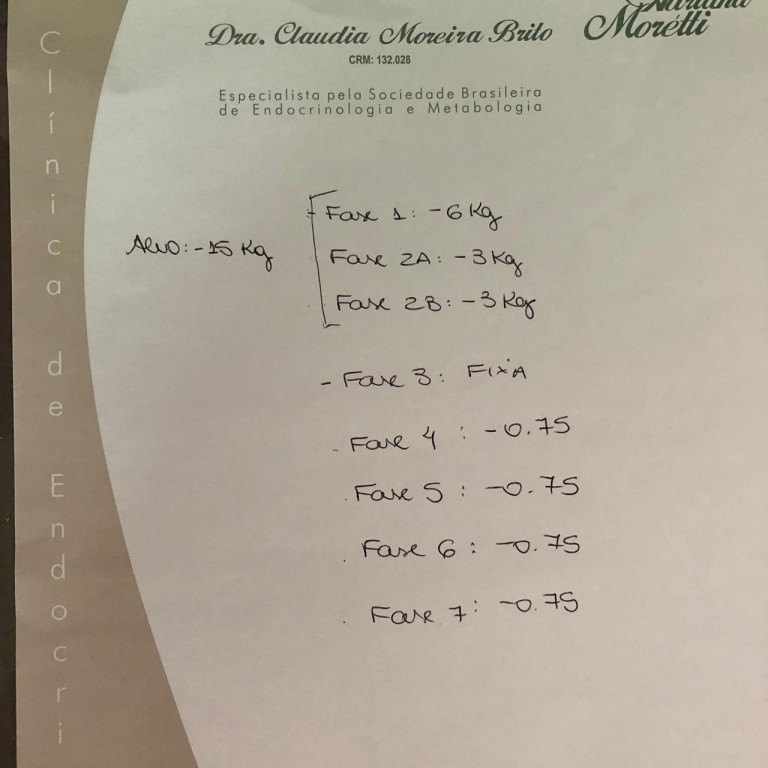 Dra. Claudia Moreira Brito
CRM: 132.028
Especialista pela Sociedade Brasileira
de Endocrinologia e Metabologia
Moretti
Clínica de Endocri
Alvo: -15 Kg
- Fase 1: -6 Kg
Fase 2A: -3 Kg
Fase 2B: -3 Kg
- Fase 3: FIXA
- Fase 4 : -0.75
. Fase 5 : -0.75
. Fase 6 : -0.75
. Fase 7 : -0.75